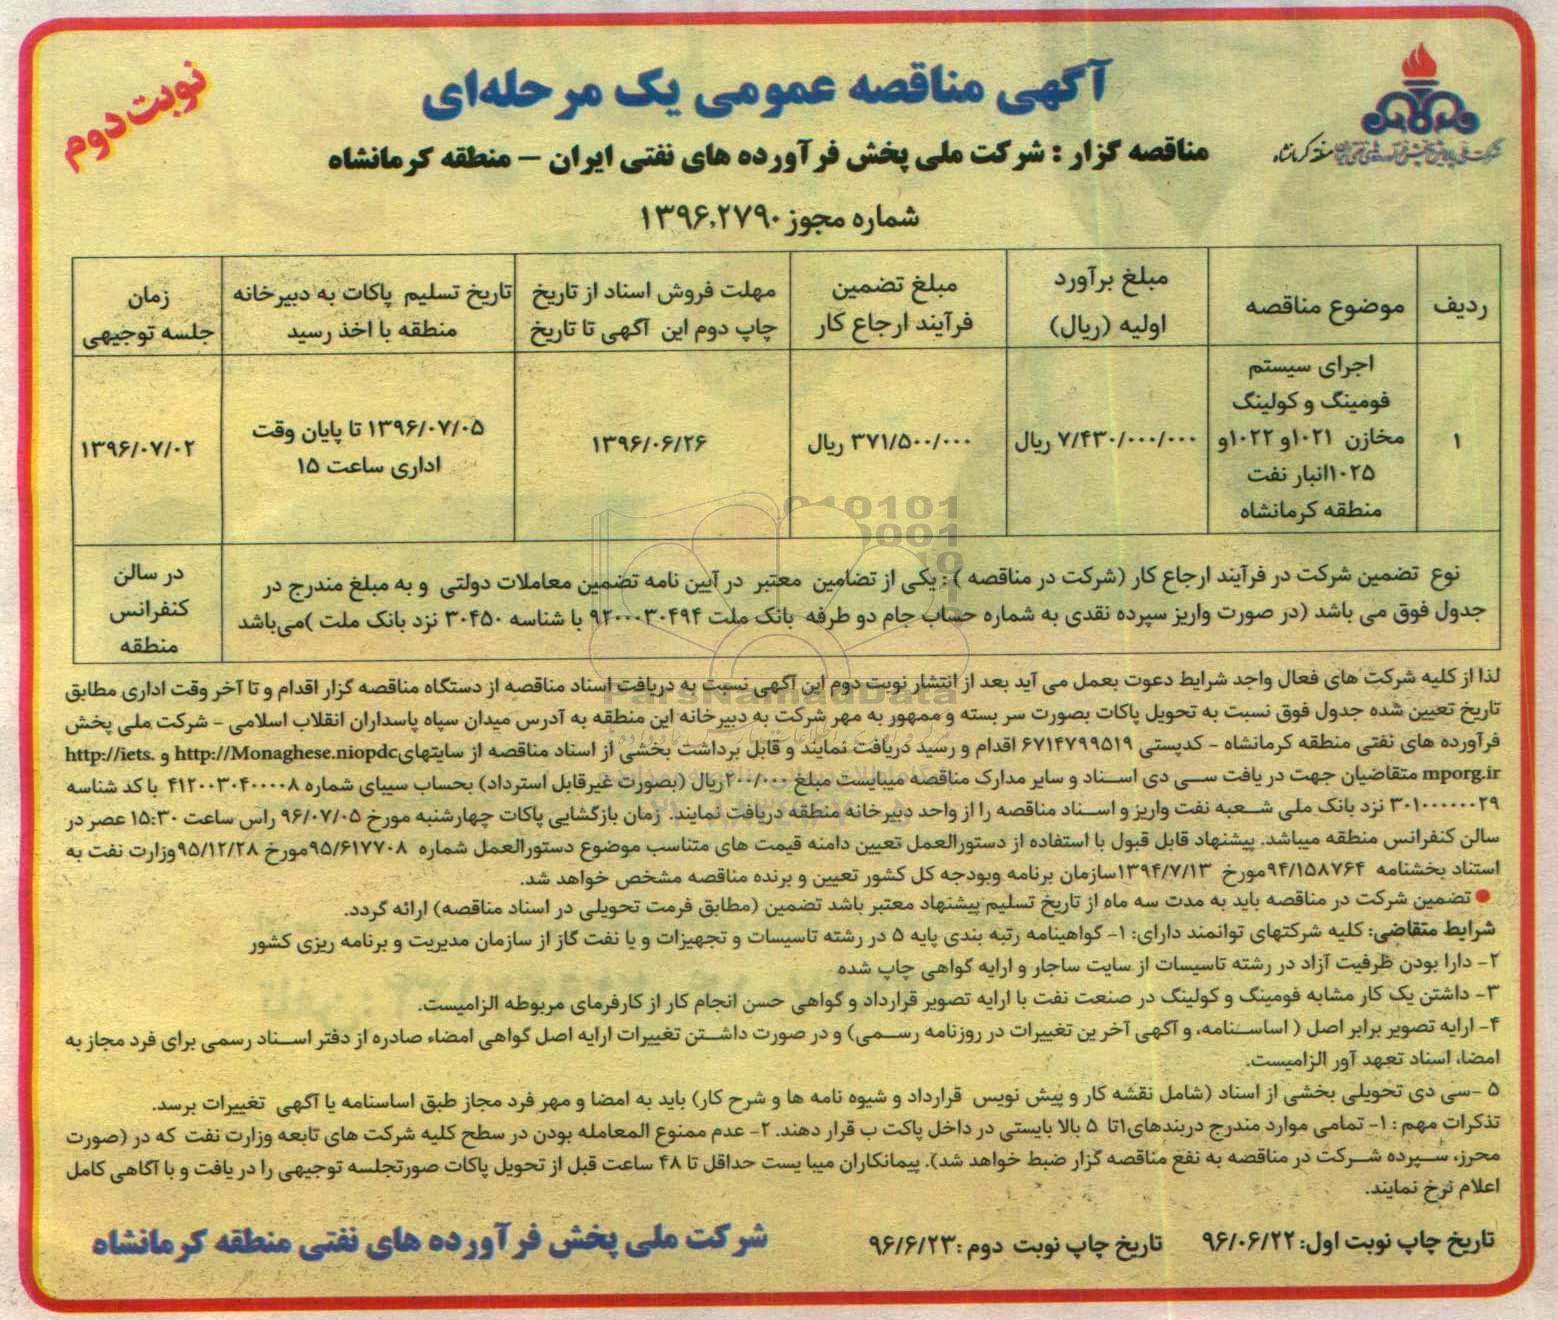 نوبت دوم
آگهی مناقصه عمومی یک مرحله‌ای
مناقصه گزار : شرکت ملی پخش فرآورده های نفتی ایران – منطقه کرمانشاه
شماره مجوز ۱۳۹۶,۲۷۹۰
ردیف
موضوع مناقصه
مبلغ برآورد
اولیه (ریال)
مبلغ تضمین
فرآیند ارجاع کار
مهلت فروش اسناد از تاریخ
چاپ دوم این آگهی تا تاریخ
تاریخ تسلیم پاکات به دبیرخانه
منطقه با اخذ رسید
زمان
جلسه توجیهی
۱
اجرای سیستم
فومینگ و کولینگ
مخازن ۱۰۲۱و ۱۰۲۲و
۱۰۲۵انبار نفت
منطقه کرمانشاه
۷/۴۳۰/۰۰۰/۰۰۰ ریال
۳۷۱/۵۰۰/۰۰۰ ریال
۱۳۹۶/۰۶/۲۶
۱۳۹۶/۰۷/۰۵ تا پایان وقت
اداری ساعت ۱۵
۱۳۹۶/۰۷/۰۲
نوع تضمین شرکت در فرآیند ارجاع کار (شرکت در مناقصه ) : یکی از تضامین معتبر در آیین نامه تضمین معاملات دولتی و به مبلغ مندرج در
جدول فوق می باشد (در صورت واریز سپرده نقدی به شماره حساب جام دو طرفه بانک ملت ۹۲۰۰۰۳۰۴۹۴ با شناسه ۳۰۴۵۰ نزد بانک ملت )می‌باشد
در سالن
کنفرانس
منطقه
لذا از کلیه شرکت های فعال واجد شرایط دعوت بعمل می آید بعد از انتشار نوبت دوم این آگهی نسبت به دریافت اسناد مناقصه از دستگاه مناقصه گزار اقدام و تا آخر وقت اداری مطابق
تاریخ تعیین شده جدول فوق نسبت به تحویل پاکات بصورت سر بسته و ممهور به مهر شرکت به دبیرخانه این منطقه به آدرس میدان سپاه پاسداران انقلاب اسلامی - شرکت ملی پخش
فرآورده های نفتی منطقه کرمانشاه - کدپستی ۶۷۱۴۷۹۹۵۱۹ اقدام و رسید دریافت نمایند و قابل برداشت بخشی از اسناد مناقصه از سایتهای http://Monaghese.niopdc و http://iets.
mporg.ir متقاضیان جهت دریافت سی دی اسناد و سایر مدارک مناقصه میبایست مبلغ ۲۰۰/۰۰۰ریال (بصورت غیرقابل استرداد) بحساب سیبای شماره ۴۱۲۰۰۳۰۴۰۰۰۰۸ با کد شناسه
۳۰۱۰۰۰۰۰۰۲۹ نزد بانک ملی شعبه نفت واریز و اسناد مناقصه را از واحد دبیرخانه منطقه دریافت نمایند. زمان بازگشایی پاکات چهارشنبه مورخ ۹۶/۰۷/۰۵ راس ساعت ۱۵:۳۰ عصر در
سالن کنفرانس منطقه میباشد. پیشنهاد قابل قبول با استفاده از دستورالعمل تعیین دامنه قیمت های متناسب موضوع دستورالعمل شماره ۹۵/۶۱۷۷۰۸مورخ ۹۵/۱۲/۲۸وزارت نفت به
استناد بخشنامه ۹۴/۱۵۸۷۶۴مورخ ۱۳۹۴/۷/۱۳سازمان برنامه وبودجه کل کشور تعیین و برنده مناقصه مشخص خواهد شد.
● تضمین شرکت در مناقصه باید به مدت سه ماه از تاریخ تسلیم پیشنهاد معتبر باشد تضمین (مطابق فرمت تحویلی در اسناد مناقصه) ارائه گردد.
شرایط متقاضی: کلیه شرکتهای توانمند دارای: ۱- گواهینامه رتبه بندی پایه ۵ در رشته تاسیسات و تجهیزات و یا نفت گاز از سازمان مدیریت و برنامه ریزی کشور
۲- دارا بودن ظرفیت آزاد در رشته تاسیسات از سایت ساجار و ارایه گواهی چاپ شده
۳- داشتن یک کار مشابه فومینگ و کولینگ در صنعت نفت با ارایه تصویر قرارداد و گواهی حسن انجام کار از کارفرمای مربوطه الزامیست.
۴- ارایه تصویر برابر اصل ( اساسنامه، و آگهی آخرین تغییرات در روزنامه رسمی) و در صورت داشتن تغییرات ارایه اصل گواهی امضاء صادره از دفتر اسناد رسمی برای فرد مجاز به
امضا، اسناد تعهد آور الزامیست.
۵ -سی دی تحویلی بخشی از اسناد (شامل نقشه کار و پیش نویس قرارداد و شیوه نامه ها و شرح کار) باید به امضا و مهر فرد مجاز طبق اساسنامه یا آگهی تغییرات برسد.
تذکرات مهم : ۱- تمامی موارد مندرج دربندهای۱تا ۵ بالا بایستی در داخل پاکت ب قرار دهند. ۲- عدم ممنوع المعامله بودن در سطح کلیه شرکت های تابعه وزارت نفت که در (صورت
محرز، سپرده شرکت در مناقصه به نفع مناقصه گزار ضبط خواهد شد). پیمانکاران میبایست حداقل تا ۴۸ ساعت قبل از تحویل پاکات صورتجلسه توجیهی را دریافت و با آگاهی کامل
اعلام نرخ نمایند.
تاریخ چاپ نوبت اول: ۹۶/۰۶/۲۲
تاریخ چاپ نوبت دوم :۹۶/۶/۲۳
شرکت ملی پخش فرآورده های نفتی منطقه کرمانشاه